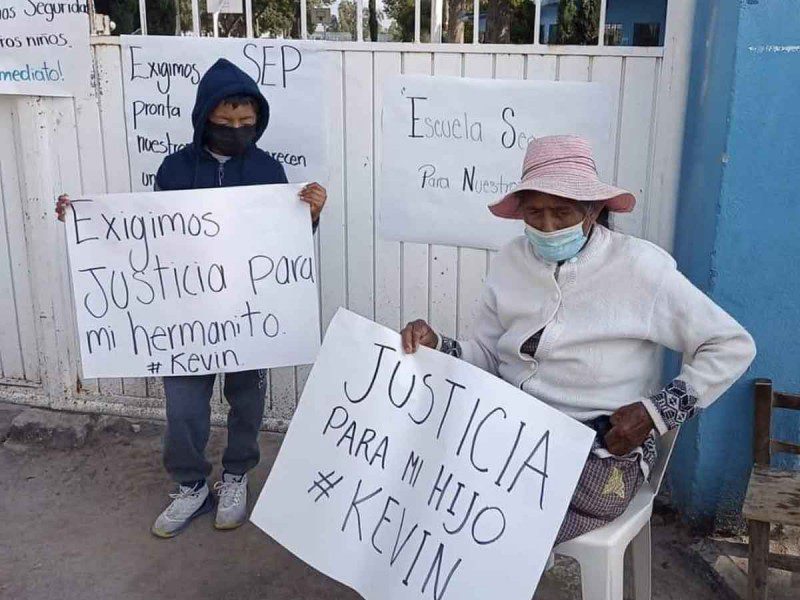 os Seguridad
ros niños.
mediato!
Exigimos SEP
pronta
nuestra
un
recen
Escuela
Para Nuestr
Exigimos
Justicia para
mi hermanito.
#Kevin.
JUSTICIA
PARA MI HIJO
#KEVIN